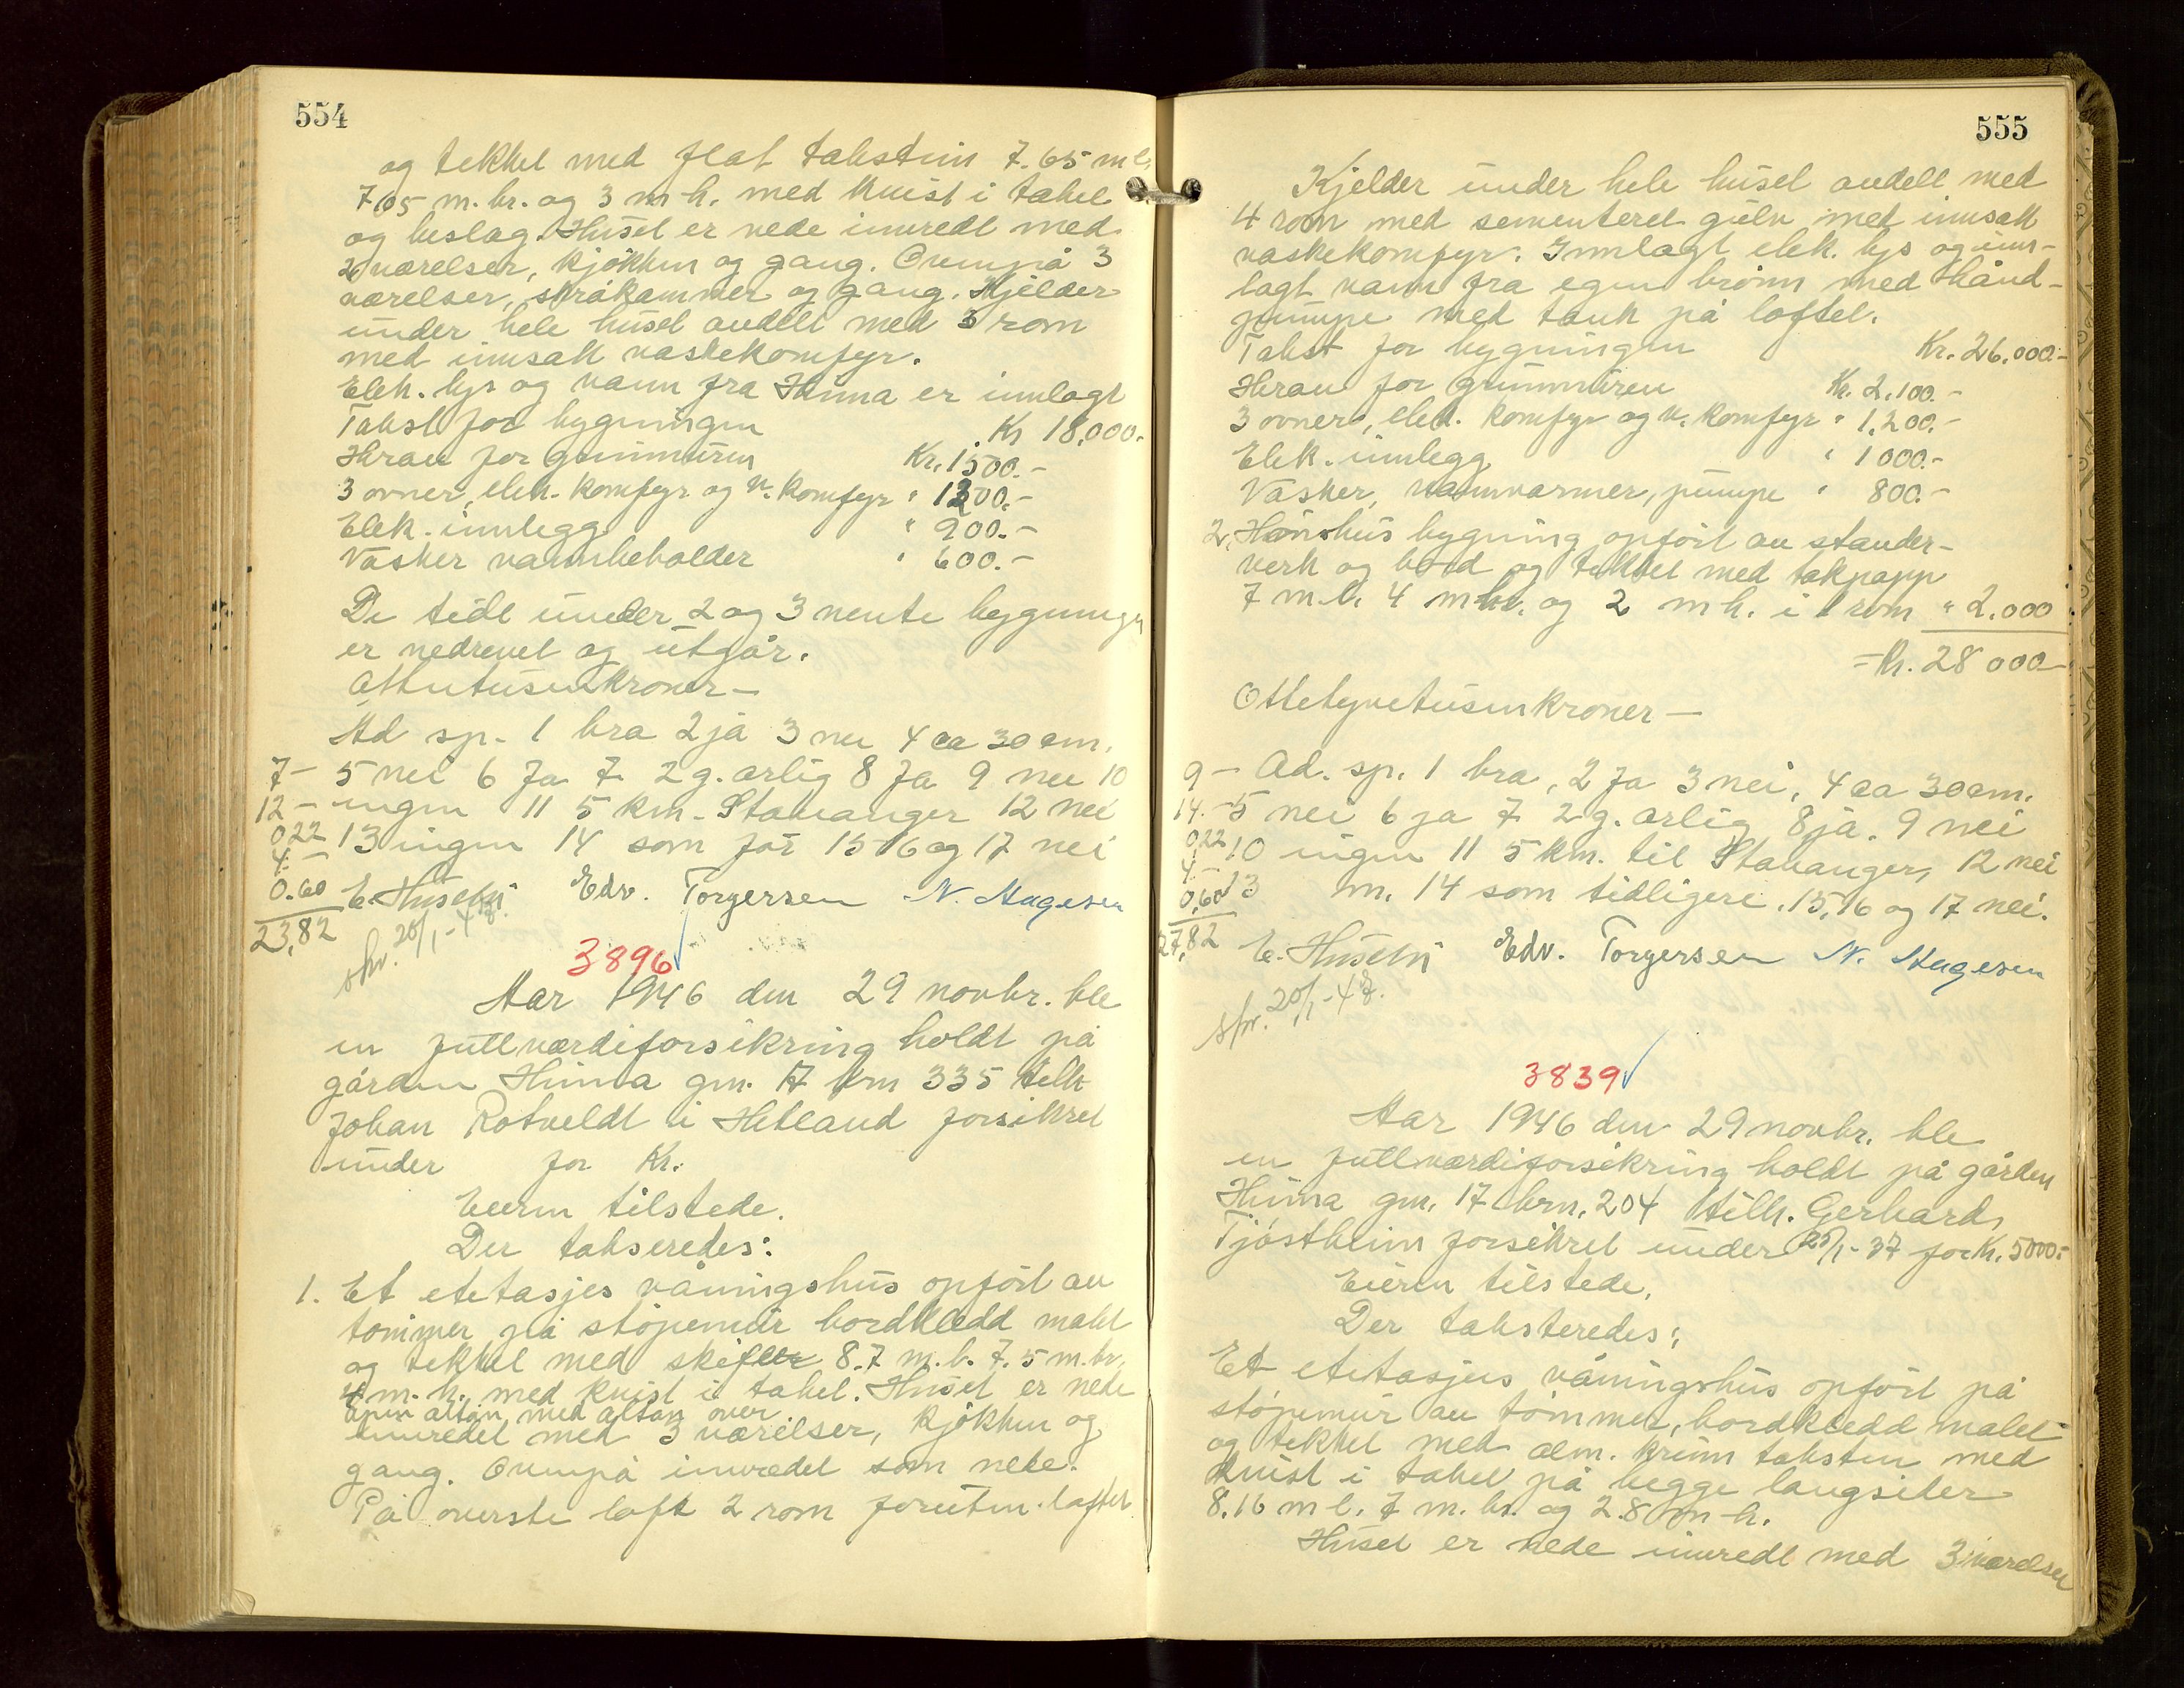 554
og tekket med flat takstein 7.65 m l.
7.65 m. br. og 3 m h. med kvist i taket
og beslag. Huset er nede innredt med
2 værelser, kjøkken og gang. Ovenpå 3
værelser, skråkammer og gang. Kjelder
under hele huset avdelt med 3 rom
med innsatt vaskekomfyr.
Elek. lys og vann fra Hinna er innlagt
Takst for bygningen Kr 18.000.-
Herav for grunnmuren Kr. 1500.-
3 ovner, elek. komfyr og v. komfyr " 1200.-
Elek. innlegg " 900.-
Vasker varmbeholder " 600.-
De tidl under 2 og 3 nevnte bygninger
er nedrevet og utgår.
Attentusenkroner-
Ad sp. 1 bra 2 ja 3 nei 4 ca 30 cm.
7- 5 nei 6 Ja 7 2 g. årlig 8 Ja 9 nei 10
12- ingen 11 5 km. Stavanger 12 nei
0.22 13 ingen 14 som før 15 16 og 17 nei
4.-
0.60 E. Huseby Edv. Torgersen N. Hagesen
23,82
skr. 20/1-47.
3896
Aar 1946 den 29 novbr. ble
en fullværdiforsikring holdt på
gården Hinna gn. 17 brn 335 tilh
Johan Rotveldt i Hetland forsikret
under for Kr.
Eieren tilstede.
Der takseredes:
1. Et etetasjes våningshus opført av
tømmer på støpemur bordkledd malt
og tekket med skifer 8.7 m. l. 7.5 m. br.
4 m. h. med kvist i taket. Huset er nede
åpen altan med altan over
innredet med 3 værelser, kjøkken og
gang. Ovenpå innredet som nede.
På øverste loft 2 rom foruten loftet
555
Kjelder under hele huset avdelt med
4 rom med sementeret gulv med innsatt
vaskekomfyr. Innlagt elek. lys og inn-
lagt vann fra egen brønn med hånd-
pumpe med tank på loftet.
Takst for bygningen Kr. 26.000.-
Herav for grunnmuren Kr. 2.100.-
3 ovner, elek. komfyr og v. komfyr " 1.200.-
Elek. innlegg " 1000.-
Vasker, vannvarmer, pumpe " 800.-
2. Hønshus bygning opført av stander-
verk og bord og tekket med takpapp
7 m. l. 4 m br. og 2 m h. i 1 rom " 2.000
= Kr. 28 000-
Ottetyvetusenkroner-
9- Ad. sp. 1 bra, 2 Ja 3 nei, 4 ca 30 cm.
14.- 5 nei 6 ja 7 2 g. årlig 8 ja. 9 nei
0,22 10 ingen 11 5 km. til Stavanger, 12 nei
4.-
0,60 13 in. 14 som tidligere, 15, 16 og 17 nei.
27,82 E. Huseby Edv. Torgersen N. Hagesen
skr. 20/1-47.
3839
Aar 1946 den 29 novbr. ble
en fullværdiforsikring holdt på gården
Hinna gn. 17 brn. 204 tilh. Gerhard
Tjøstheim forsikret under 25/1-37 for Kr. 5000.-
Eieren tilstede.
Der taksteredes:
Et etetasjes våningshus opført på
støpemur av tømmer, bordkledd malet
og tekket med alm. krum taksten med
kvist i taket på begge langsider
8.16 m l. 7 m. br. og 2.8 m h.
Huset er nede innredt med 3 værelser